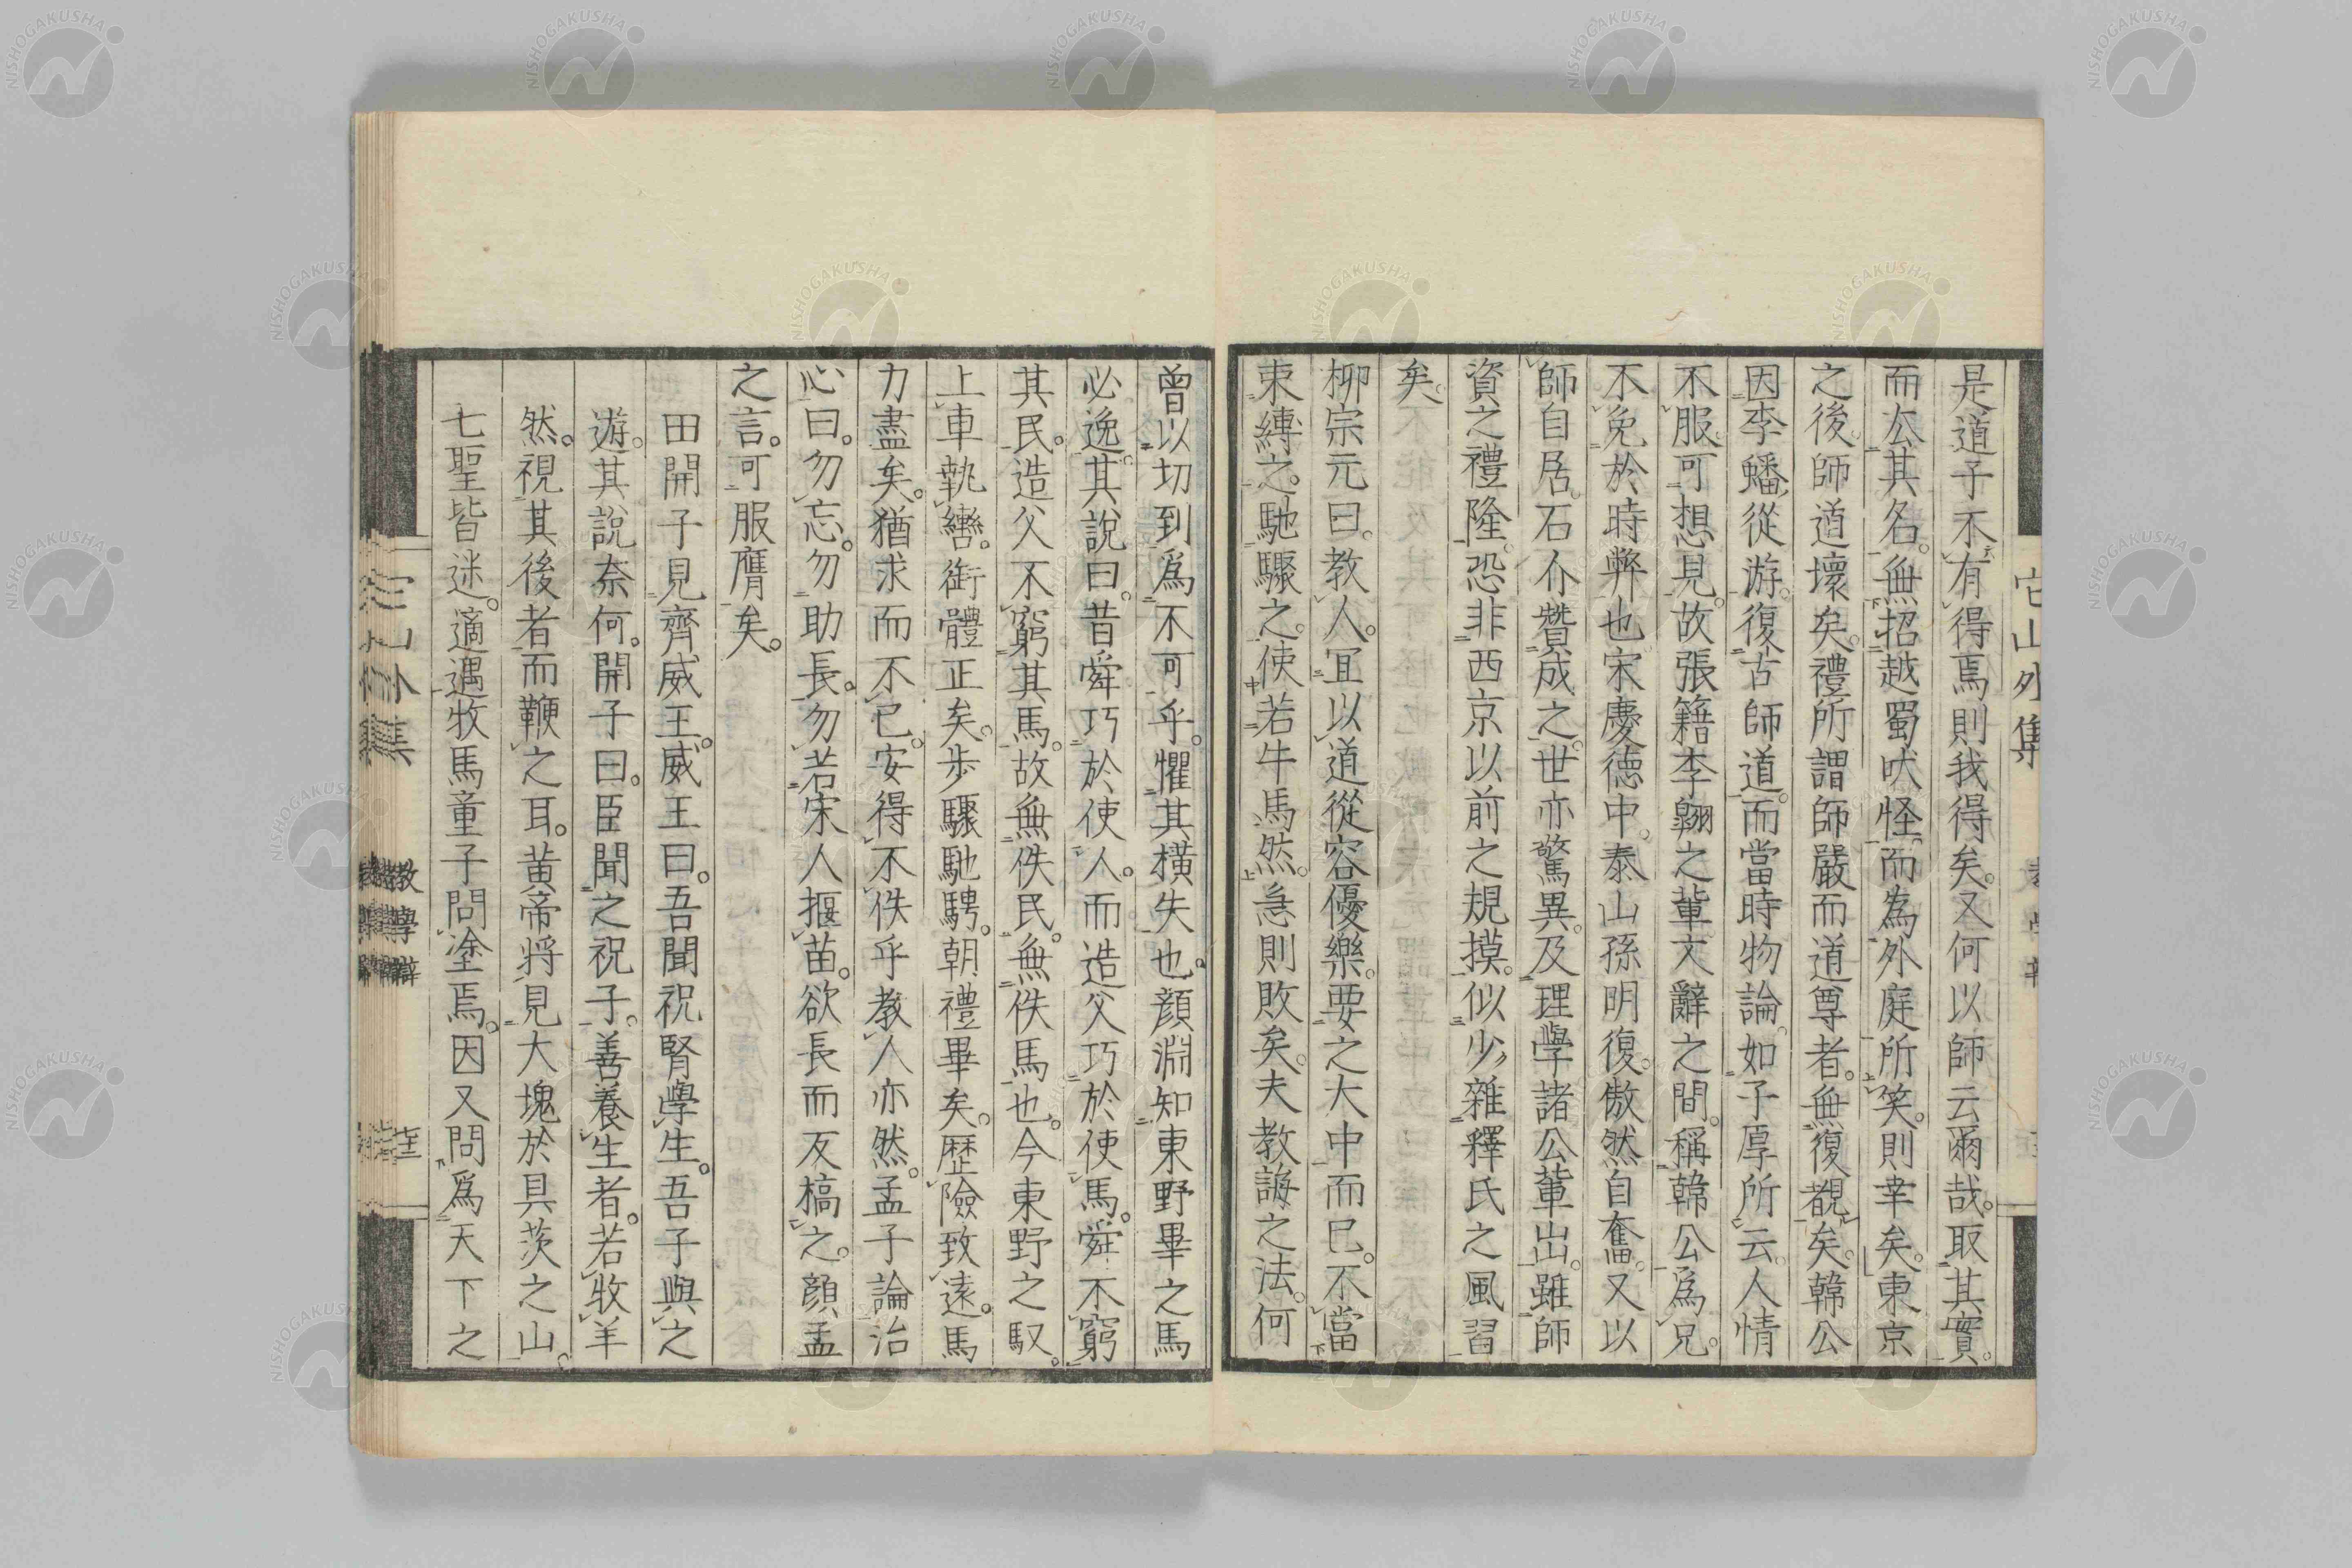 是道子不有得焉則我得矣。又何以師云爾哉。取其實。
而公其名。無招越蜀吠怪。而為外庭所笑。則幸矣。東京
之後。師道壞矣。禮所謂師嚴而道尊者。無復覩矣。韓公
因李蟠從游。復古師道。而當時物論。如子厚所云。人情
不服。可想見。故張籍李翺之輩。文辭之間。稱韓公爲兄。
不免於時弊也。宋慶德中。泰山孫明復。傲然自奮。又以
師自居。石介贊成之。世亦驚異。及理學諸公輩出。雖師
資之禮隆。恐非西京以前之規摸。似少雜釋氏之風習
矣。
柳宗元曰。教人。冝以道從容優樂。要之大中而已。不當
束縛之。馳驟之。使若牛馬然。急則敗矣。夫教誨之法。何
它山外集
曾以切到爲不可乎。懼其橫失也。顔淵知東野畢之馬
必逸。其說曰。昔舜巧於使人。而造父巧於使馬。舜不窮
其民。造父不窮其馬。故無佚民。無佚馬也。今東野之馭。
上車執轡。銜體正矣。步驟馳騁。朝禮畢矣。歷險致遠。馬
力盡矣。猶求而不已。安得不佚乎。教人亦然。孟子論治
心曰。勿忘。勿助長。勿若宋人揠苗。欲長而反槁之。顔孟
之言。可服膺矣。
田開子見齊威王。威王曰。吾聞祝腎學生。吾子與之
遊。其說奈何。開子曰。臣聞之祝子。善養生者。若牧羊
然。視其後者而鞭之耳。黃帝將見大塊於具茨之山。
七聖皆迷。適遇牧馬童子問塗焉。因又問爲天下之
教學辯